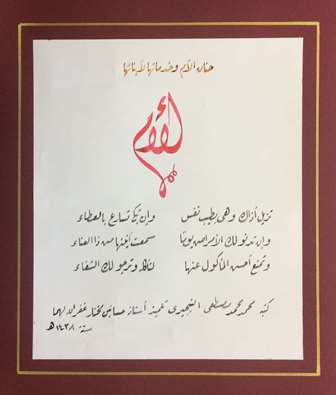 حنان الأم وخدماتها لأبنائها
الأم
تزيل أذاك وهي بطيب نفس وإن تبكي تسارع بالعطاء
وإن تدنو لك الأمراض يوما سمعت أنينها من ذا العناء
وتمنع أحسن المأكول عنها لتأكله وترجو لك الشفاء
كتبه محمد محمد مصطفى تلميذ أستاذ مختار غفر الله لهما
سنة ١٤٣٨هـ